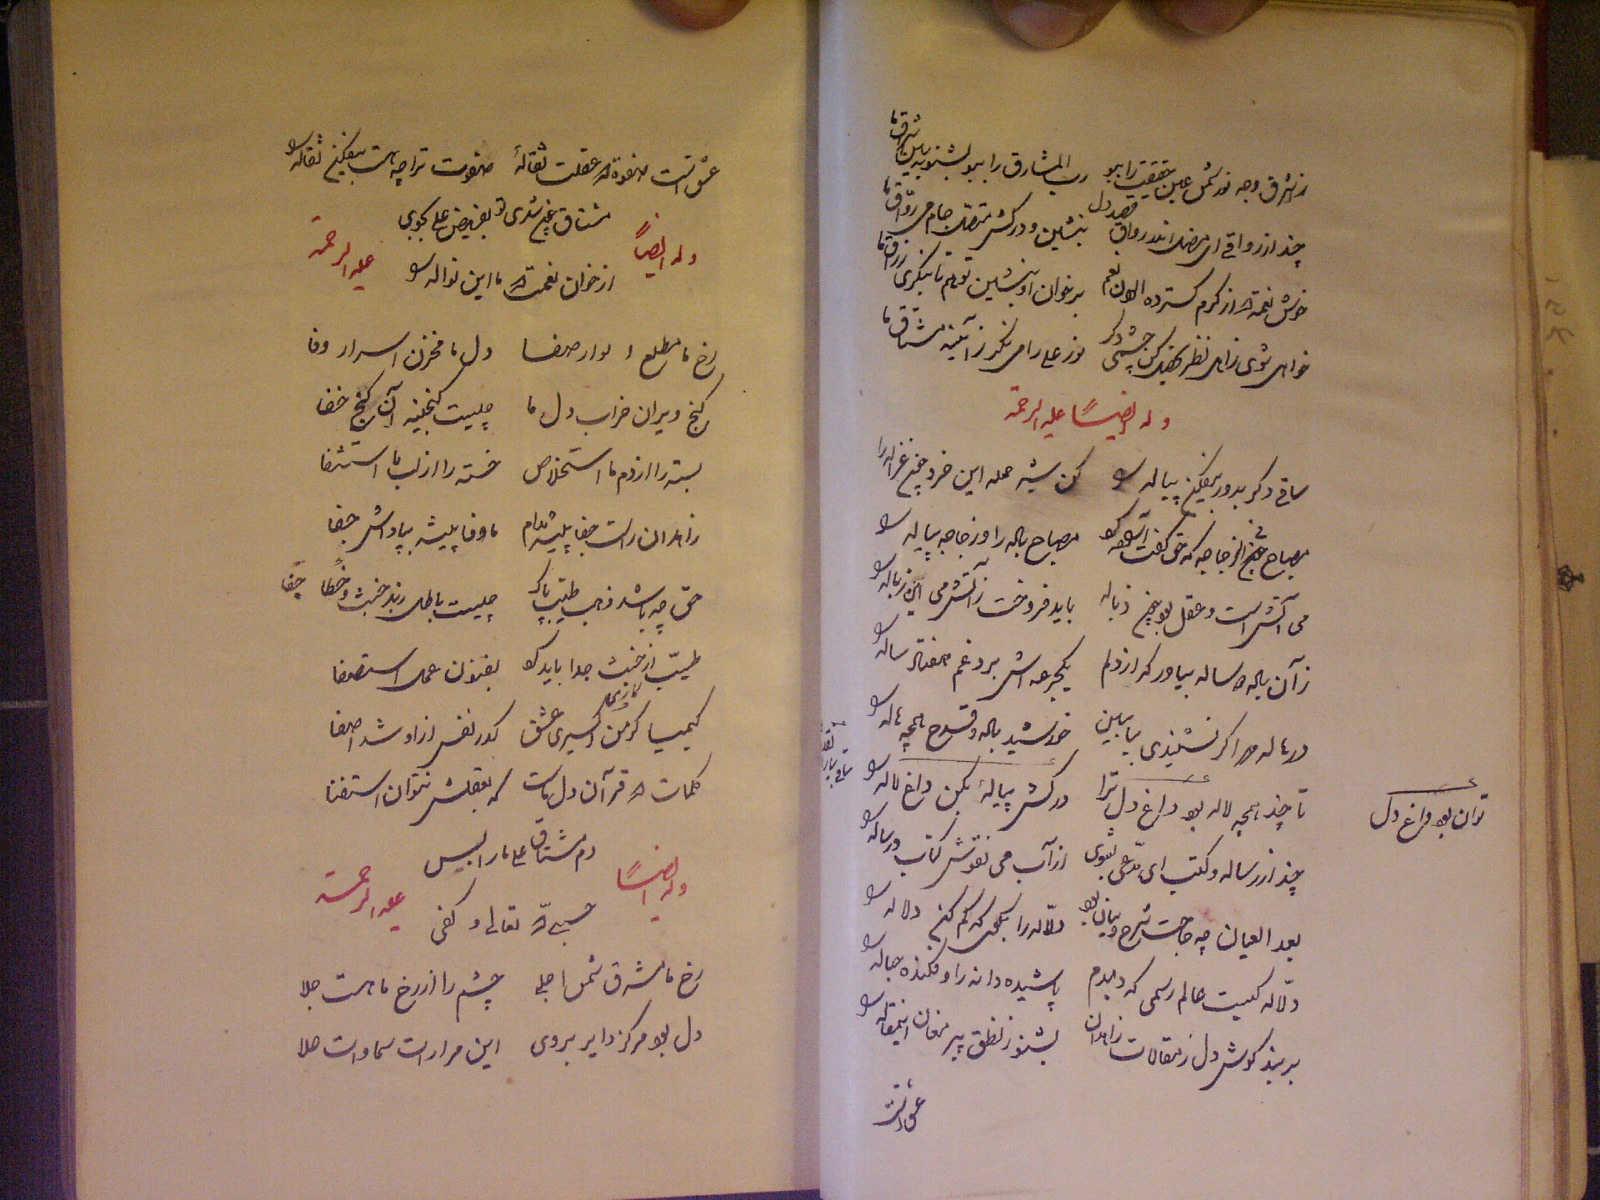 ز شرق وجه نور شمس عین حقیقت را ببو رب المشارق را ببو بشنو به بین اشراق ما
چند از رواقی ای مرضی اندر رواق دل بنشین و درکش جام می رواق ما
خوش نعمة الله از کرم گسترده الوان نعم بر خوان او بنشین تو هم تا بنگری ارزاق ما
خواهی شوی ز اهل نظر کن چشمی دگر نور علی را می نگر ز آئینه مشتاق ما
وله ایضاً علیه الرحمة
ساقی دگر بدور بیفکن پیاله را کن شیر حمله این خرد چون غزاله را
مصباح فی الزجاجه که حق گفت مصباح باده را و زجاجه پیاله را
می آتش است و عقل بود چون ذباله باید فروخت ز آتش می این ذباله را
ز آن باده ساله بیاور که از دلم یکجرعه اش برد غم هفتاد ساله را
در هاله اگر نشنیدی بیا ببین خورشید باده و قدح همچو هاله را
تا چند همچو لاله بود داغ دل ترا درکش پیالهٔ بکن داغ لاله را
توان بود داغ دل
چند از رساله و کتب ای مدعی بشوی از آب می نقوش کتاب و رساله را
بعد العیان چه حاجت شرح و بیان بود دلاله را بگوی که کم کن دلاله را
دلاله کیست عالم رسمی که دیدم پاشیده دانه را و فکنده حباله را
بربند گوش دل ز مقالات زاهدان بشنو ز نطق پیر مغان اینمقاله را
عشق است
عشق است صفوة الله و عقلت ثفاله صفوت ترا چو هست بیفکن ثفاله را
مشتاق چون شدی تو بفیض علی بجوی
وله ایضاً علیه الرحمة
از خوان نعمت الله ما این نواله را
رخ ما مطلع انوار صفا دل ما مخزن اسرار وفا
کنج ویران خراب دل ما چیست گنجینه آن گنج خفا
بسته را از دم ما استخلاص خسته را از لب ما استشفا
زاهدان راست جفا پیشه مدام ما وفا پیشه بپاداش جفا
حق چه باشد ذهب طیب پاک چیست باطل زبد خبث و خطا جفا
طیب از خبث جدا باید کرد بفنون عمل استصفا
کیمیا گر من و اکسیری عشق کدر نفس ازاو شد اصفا
کلمات الله قرآن دل است که بعقلش نتوان استفتا
دم مشتاق علی ما را بس
وله ایضاً علیه الرحمة
حسبی الله تعالی و کفی
رخ ما مشرق شمس اجلی چشم را از رخ ما هست جلا
دل بود مرکز دایر بروی این مدارات سماوات علا